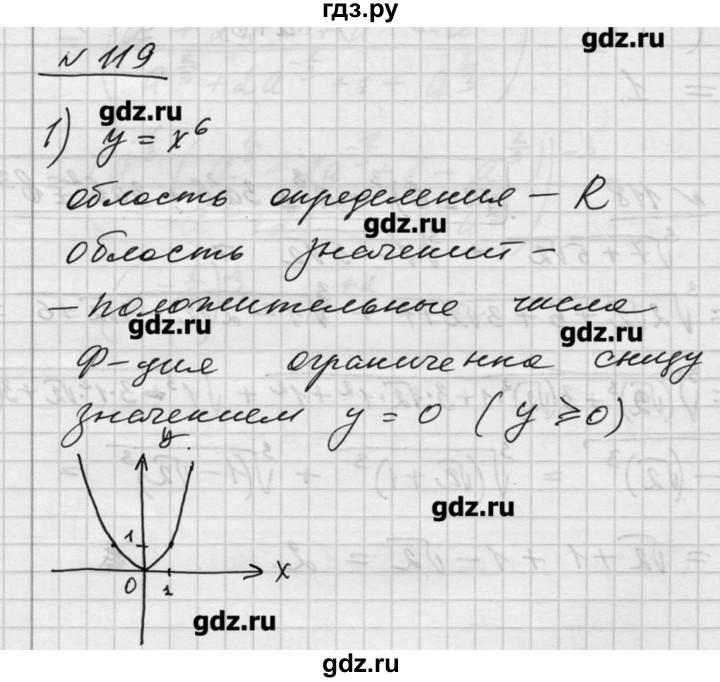 гдз.ру
gdz.ru
№ 119
gdz.ru
1) y = x⁶
область определения – R
gdz.ru
область значений –
– положительные числа
gdz.ru gdz.ru
Ф-ция ограниченна снизу
значением y = 0 (y ⩾ 0)
y
gdz.ru
1
x
0 1
gdz.ru
gdz.ru